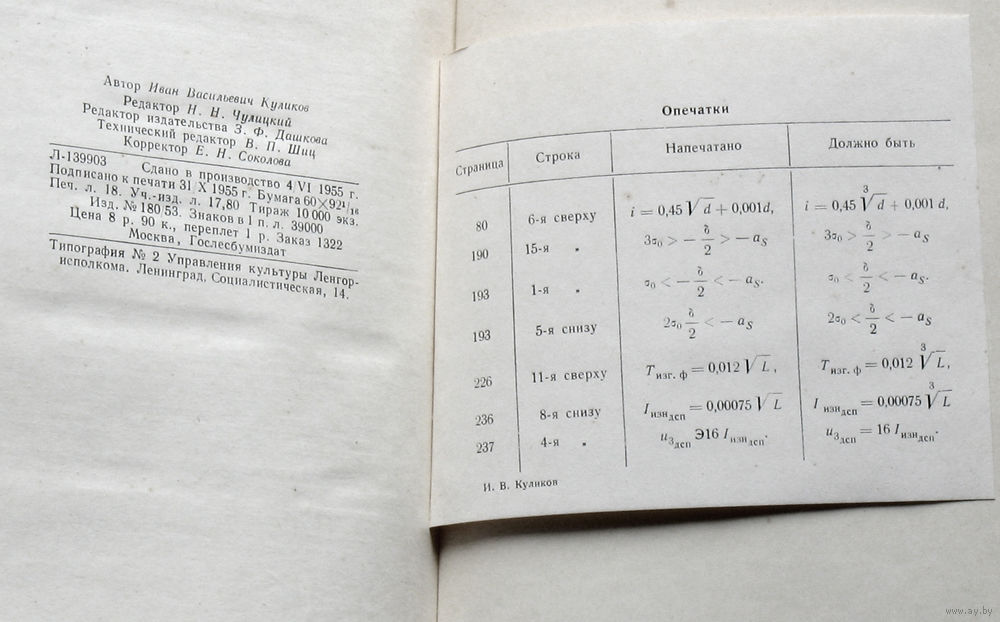 Автор Иван Васильевич Куликов
Редактор Н. Н. Чулицкий
Редактор издательства З. Ф. Дашкова
Технический редактор В. П. Шиц
Корректор Е. Н. Соколова
Л-139903 Сдано в производство 4/VI 1955 г.
Подписано к печати 31/X 1955 г. Бумага 60×92 1/16
Печ. л. 18. Уч.-изд. л. 17,80 Тираж 10 000 экз.
Изд. № 180/53. Знаков в 1 п. л. 39000
Цена 8 р. 90 к., переплет 1 р. Заказ 1322
Москва, Гослесбумиздат
Типография № 2 Управления культуры Ленгор-
исполкома. Ленинград, Социалистическая, 14.
Опечатки
Страница Строка Напечатано Должно быть
80 6-я сверху i = 0,45 √d + 0,001d, i = 0,45 ∛d + 0,001 d,
190 15-я „ 3σ₀ > − δ/2 > − a_S 3σ₀ > δ/2 > − a_S
193 1-я „ σ₀ < − δ/2 < − a_S. σ₀ < δ/2 < − a_S.
193 5-я снизу 2σ₀ δ/2 < − a_S 2σ₀ < δ/2 < − a_S
226 11-я сверху T изг. ф = 0,012 √L, T изг. ф = 0,012 ∛L,
236 8-я снизу I изн дсп = 0,00075 √L I изн дсп = 0,00075 ∛L
237 4-я „ u З дсп Э16 I изн дсп. u З дсп = 16 I изн дсп.
И. В. Куликов
www.ay.by